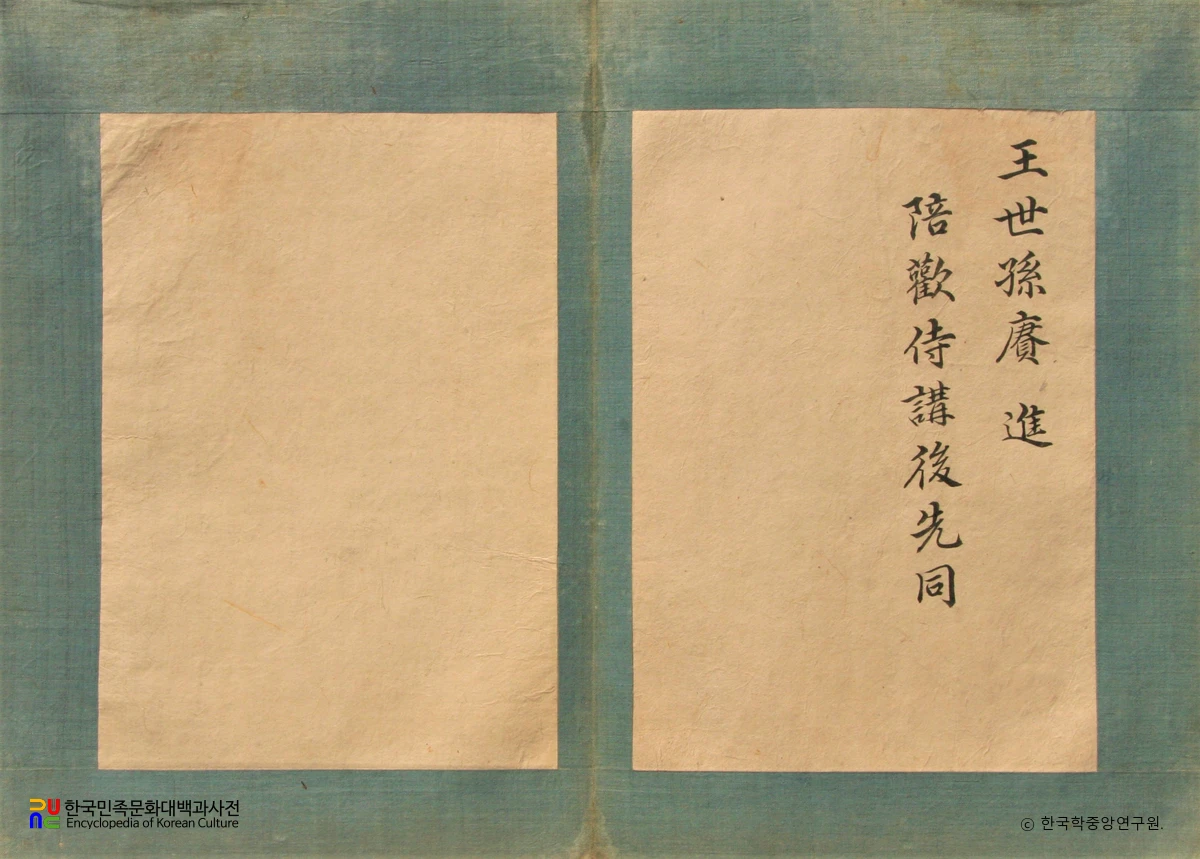 王世孫賡 進
陪歡侍講後先同
한국민족문화대백과사전
Encyclopedia of Korean Culture
ⓒ 한국학중앙연구원.